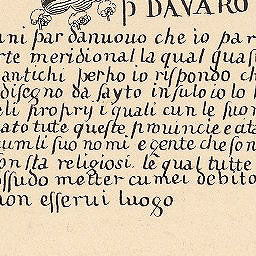 p DAVARO
ani par danuouo che io par
rte meridional la qual quas
antichi perho io rispondo ch
disegno da sayto insulo io lo
eli proprij i quali cun le suor
ato tute queste prouincie e ata
cum li suo nomi e gente che son
on sta religiosi. le qual tutte
ossudo metter cu mei debito
non esserui luogo